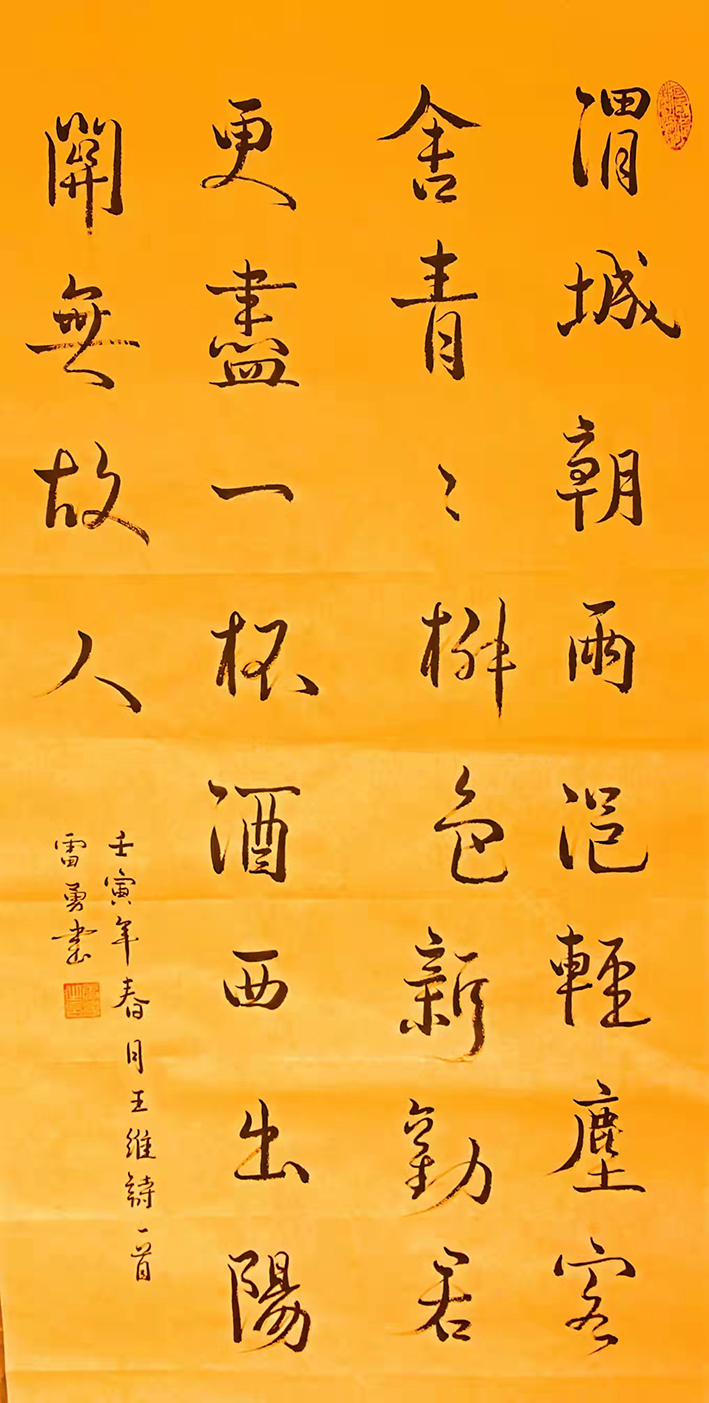 渭城朝雨浥輕塵客
舍青〻柳色新勸君
更盡一杯酒西出陽
關無故人
壬寅年春月王維詩一首
雷勇書